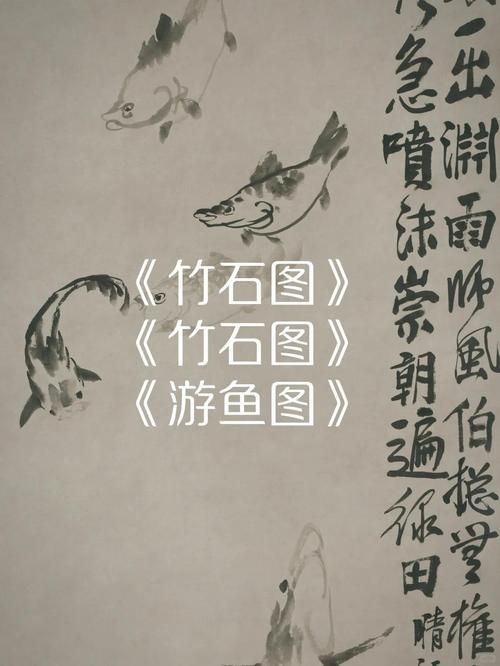 《竹石图》
《竹石图》
《游鱼图》
一出淵雨師風伯捴無權
急噴沫崇朝遍綠田
晴